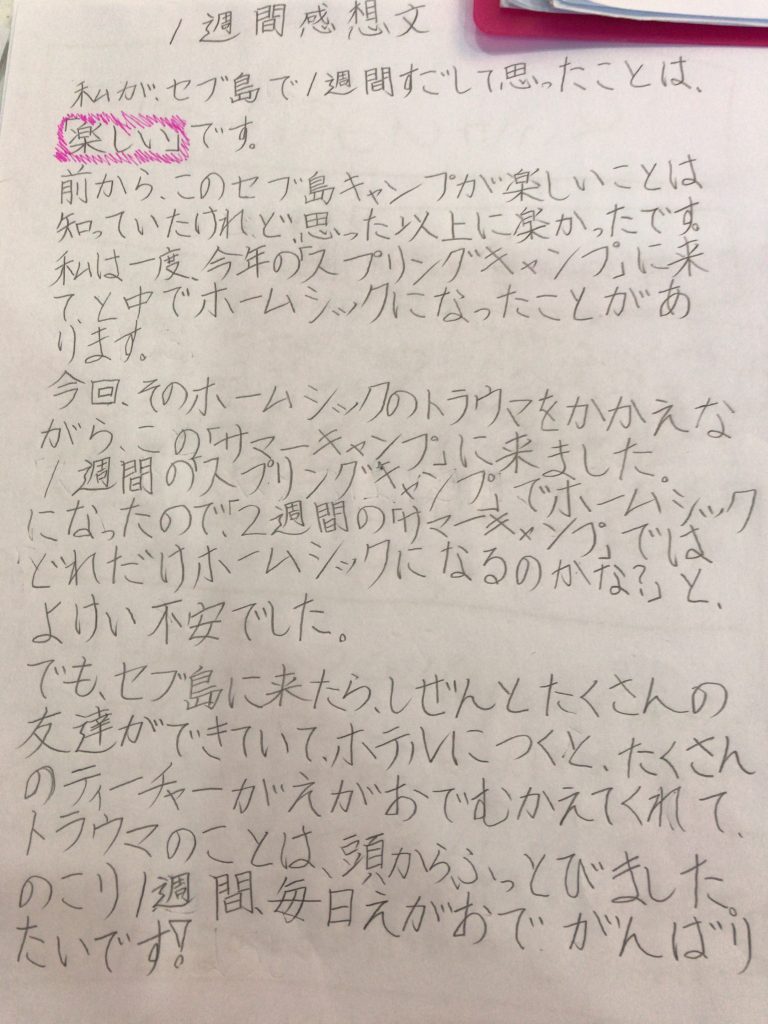 1週間感想文
私が、セブ島で1週間すごして思ったことは、
「楽しい」です。
前から、このセブ島キャンプが楽しいことは
知っていたけれど、思った以上に楽かったです。
私は一度、今年の「スプリングキャンプ」に来
て、と中でホームシックになったことがあ
ります。
今回、そのホームシックのトラウマをかかえな
がら、この「サマーキャンプ」に来ました。
1週間の「スプリングキャンプ」でホームシック
になったので、「2週間の「サマーキャンプ」では
どれだけホームシックになるのかな?」と、
よけい不安でした。
でも、セブ島に来たら、しぜんとたくさんの
友達ができていて、ホテルにつくと、たくさん
のティーチャーがえがおでむかえてくれて、
トラウマのことは、頭からふっとびました。
のこり1週間、毎日えがおでがんばり
たいです!